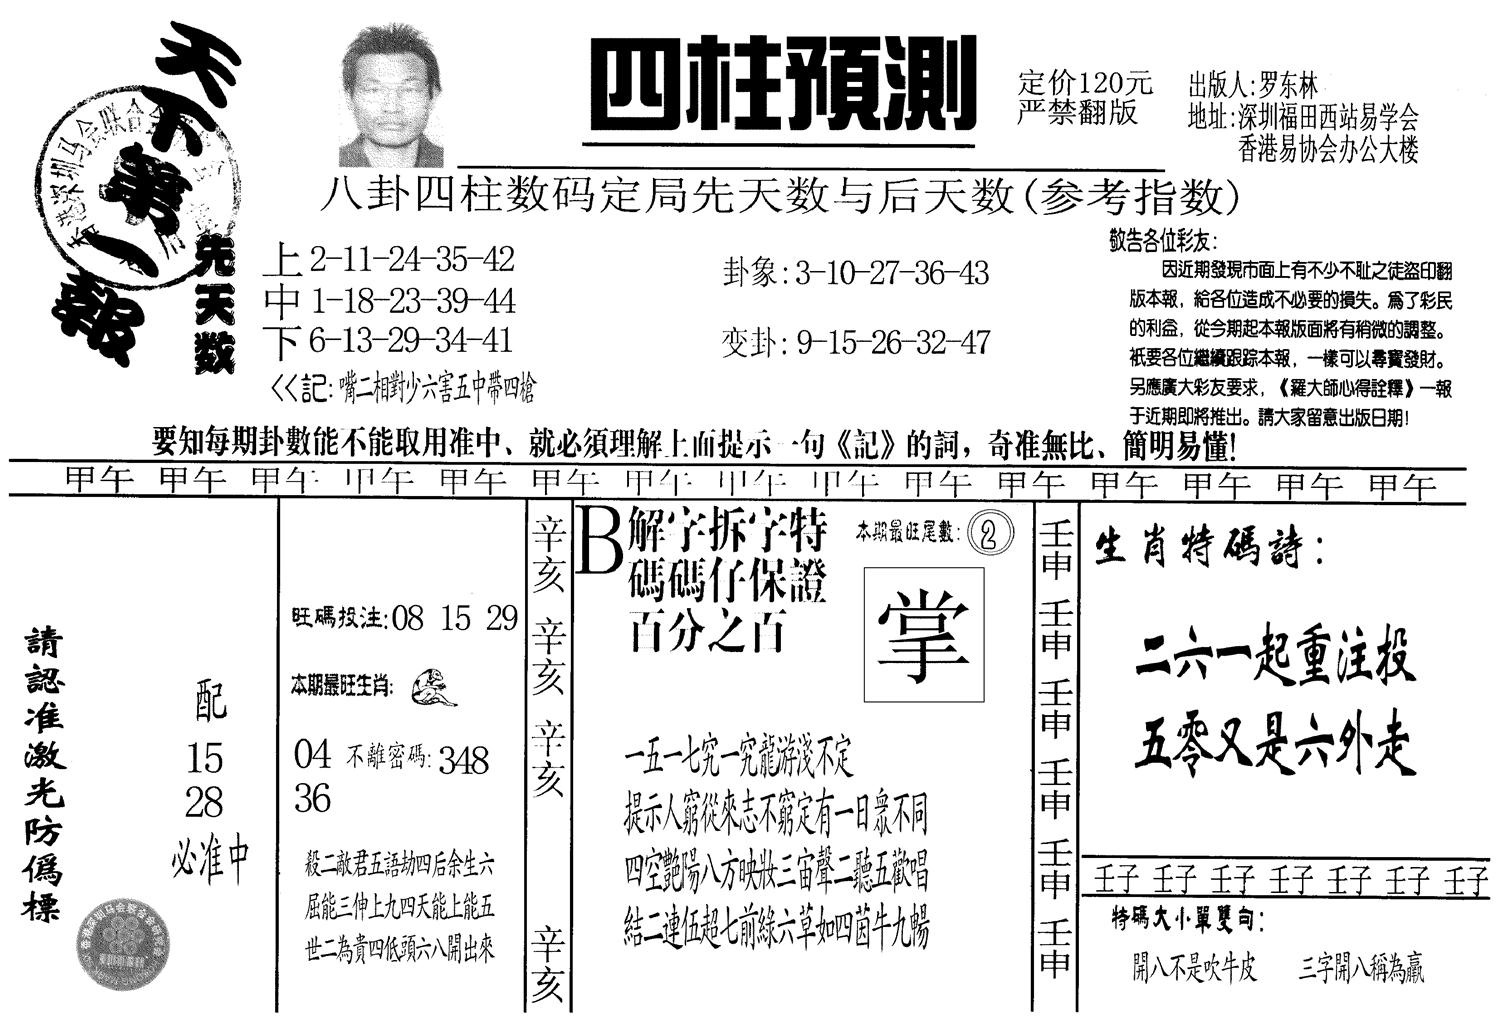 天下第一報
四柱預測
定价120元
严禁翻版
出版人:罗东林
地址:深圳福田西站易学会
香港易协会办公大楼
八卦四柱数码定局先天数与后天数(参考指数)
先天数
上 2-11-24-35-42
中 1-18-23-39-44
下 6-13-29-34-41
卦象: 3-10-27-36-43
变卦: 9-15-26-32-47
<<記: 嘴二相對少六害五中帶四槍
敬告各位彩友:
因近期發現市面上有不少不耻之徒盜印翻
版本報，給各位造成不必要的損失。爲了彩民
的利益，從今期起本報版面將有稍微的調整。
衹要各位繼續跟踪本報，一樣可以尋寶發財。
另應廣大彩友要求，《羅大師心得詮釋》一報
于近期即將推出。請大家留意出版日期!
要知每期卦數能不能取用准中、就必須理解上面提示一句《記》的詞，奇准無比、簡明易懂!
甲午 甲午 甲午 甲午 甲午 甲午 甲午 甲午 甲午 甲午 甲午 甲午 甲午 甲午 甲午
請認准激光防僞標
配
15
28
必准中
旺碼投注:08 15 29
本期最旺生肖:
04 不離密碼: 348
36
殺二敵君五語劫四后余生六
屈能三伸上九四天能上能五
世二為貴四低頭六八開出來
辛亥 辛亥 辛亥 辛亥
B 解字拆字特
碼碼仔保證
百分之百
本期最旺尾數: 2
掌
一五一七究一究龍游淺不定
提示人窮從來志不窮定有一日衆不同
四空艷陽八方映妝三宙聲二聽五歡唱
結二連伍超七前綠六草如四茵牛九暢
壬申 壬申 壬申 壬申 壬申 壬申
生肖特碼詩:
二六一起重注投
五零又是六外走
壬子 壬子 壬子 壬子 壬子 壬子 壬子
特碼大小單雙句:
開八不是吹牛皮 三字開八稱為贏